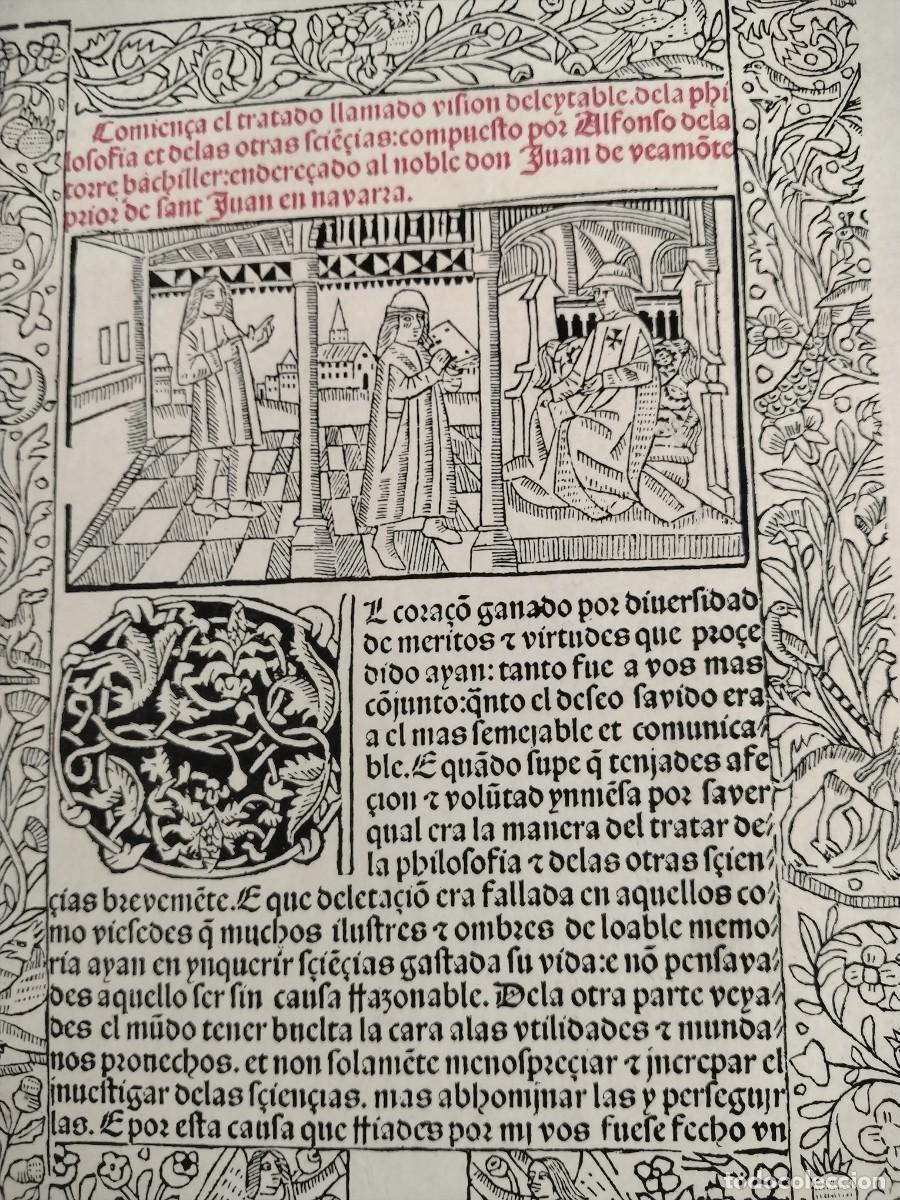 Comiença el tratado llamado vision deleytable.dela phi
losofia et delas otras sciēcias:compuesto por Alfonso dela
torre bachiller:endereçado al noble don Juan de veamōte
prior de sant Juan en navarra.
EL coraçō ganado por diuersidad
de meritos ⁊ virtudes que proçe
dido ayan: tanto fue a vos mas
cōjunto:q̄nto el deseo savido era
a el mas semejable et comunica/
ble.E quādo supe q̄ tenjades afe
çion ⁊ volūtad ynmēsa por saver
qual era la manera del tratar de/
la philosofia ⁊ delas otras sçien/
çias brevemēte.E que deletaçiō era fallada en aquellos co/
mo viesedes q̄ muchos ilustres ⁊ ombres de loable memo/
ria ayan en ynquerir sçiēçias gastada su vida:e nō pensava/
des aquello ser sin causa rrazonable. Dela otra parte veya/
des el mūdo tener buelta la cara alas vtilidades ⁊ munda/
nos prouechos. et non solamēte menospreçiar ⁊ jncrepar el
inuestigar delas sçiençias. mas abhominar las y perseguir
las. E por esta causa que rriades por mj vos fuese fecho vn
todocoleccion